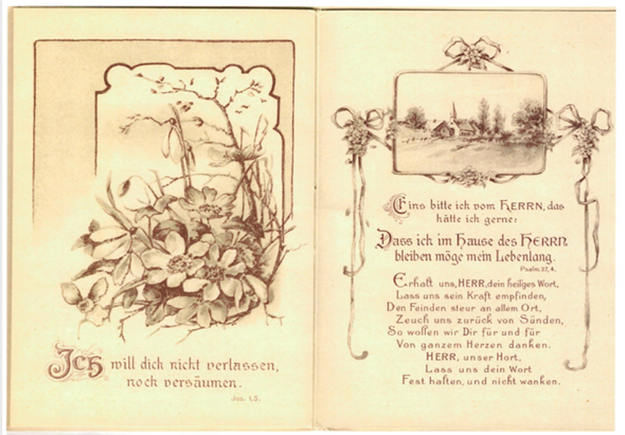 Ich will dich nicht verlassen,
noch versäumen.
Jos. 1,5.
Eins bitte ich vom HERRN, das
hätte ich gerne:
Dass ich im Hause des HERRN
bleiben möge mein Lebenlang.
Psalm 27, 4.
Erhalt uns, HERR, dein heiliges Wort,
Lass uns sein Kraft empfinden,
Den Feinden steur an allem Ort,
Zeuch uns zurück von Sünden,
So wollen wir Dir für und für
Von ganzem Herzen danken.
HERR, unser Hort,
Lass uns dein Wort
Fest halten, und nicht wanken.